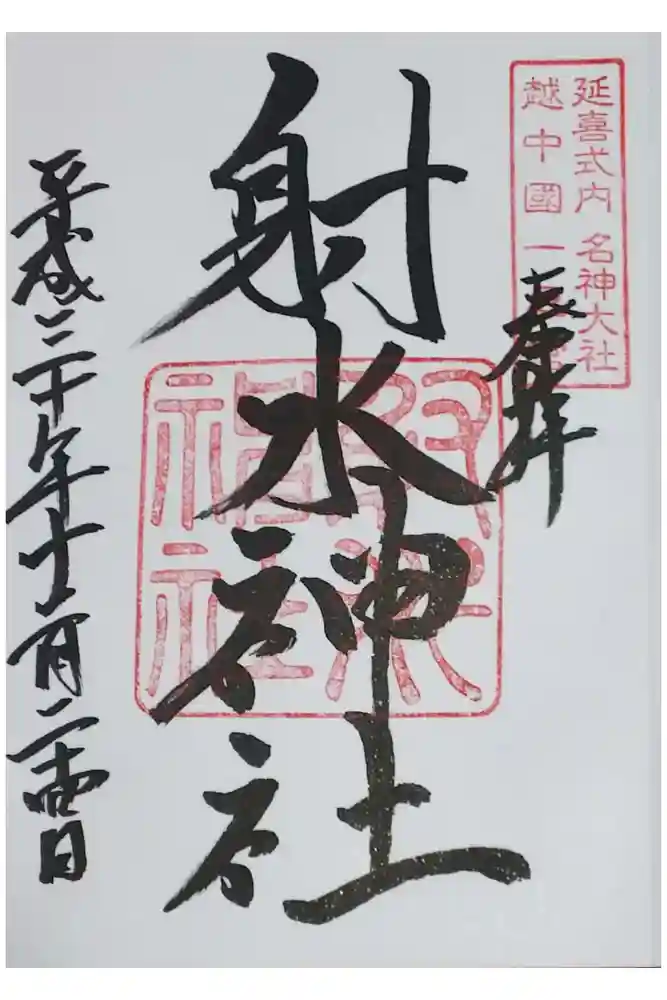 延喜式内 名神大社
越中國一宮
奉拝
射水神社
射水神社
平成三十年十一月二十四日